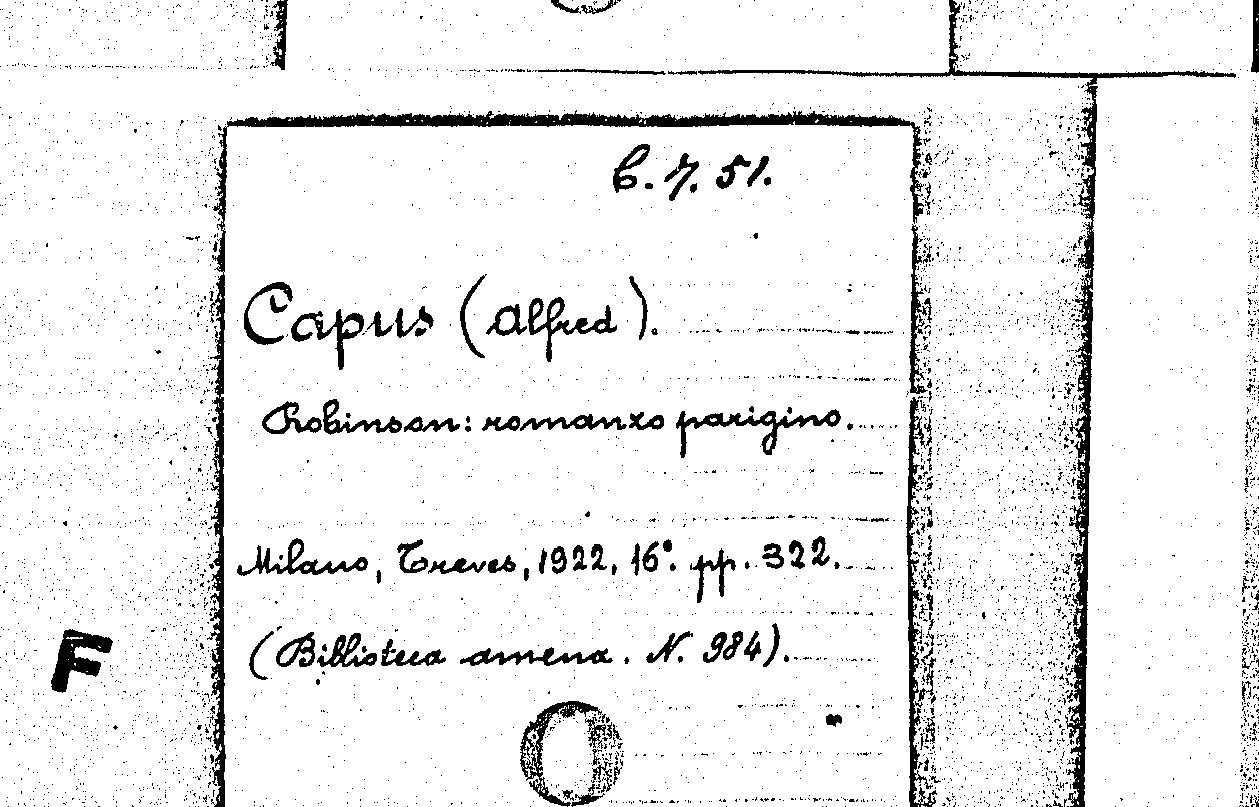 6.7.51.
Capus (Alfred).
Robinson: romanzo parigino.
Milano, Treves, 1922, 16°. pp. 322.
(Biblioteca amena. N. 984).
F